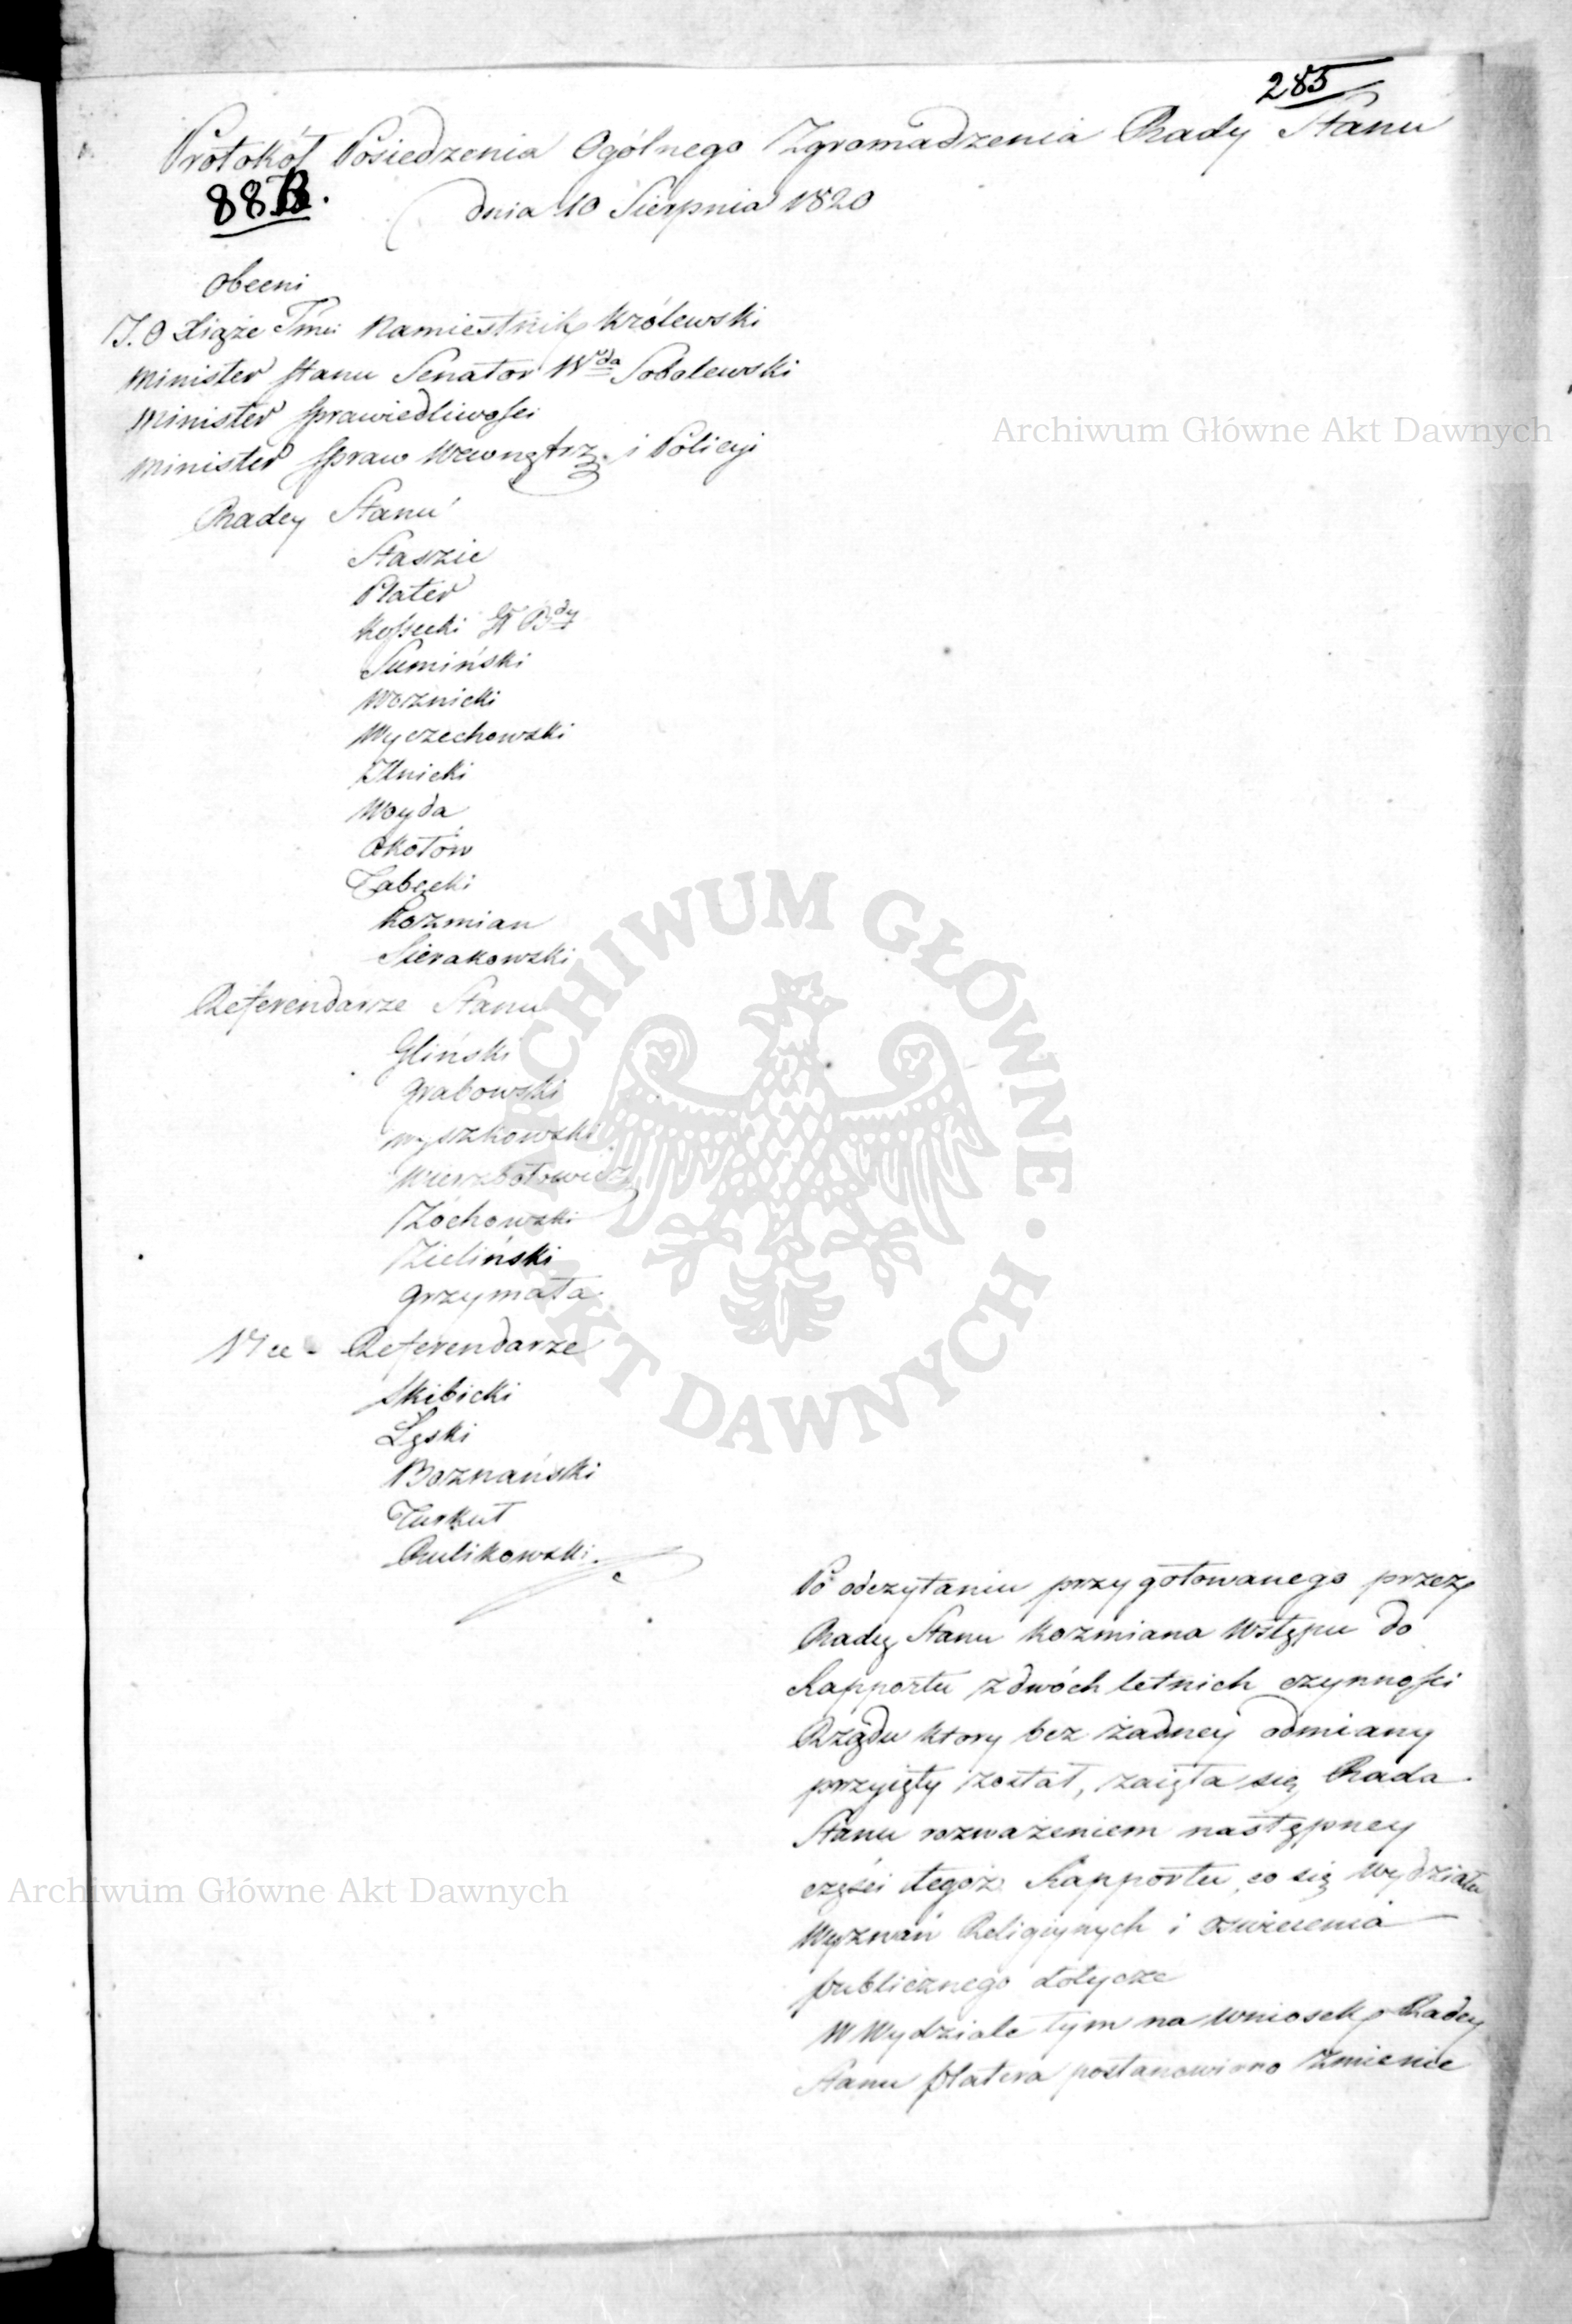 285
Protokół Posiedzenia Ogólnego Zgromadzenia Rady Stanu
88B.
dnia 10 Sierpnia 1820
Obecni
J.O Xiąże Jmć Namiestnik Królewski
Minister Stanu Senator Wda Sobolewski
Minister Sprawiedliwości
Minister Spraw Wewnętrz. i Policyi
Archiwum Główne Akt Dawnych
Radcy Stanu
Staszic
Plater
Kossecki
Sumiński
Woznicki
Wyczechowski
Lilnicki
Woyda
Okołów
Łabęcki
Kozmian
Sierakowski
Referendarze Stanu
Gliński
Grabowski
Wyszkowski
Wierzbołowicz
Żochowski
Zieliński
Grzymała
Vice-Referendarze
Skibicki
Łęski
Boznański
Turkuł
Rulikowski.
ARCHIWUM GŁÓWNE AKT DAWNYCH
Po odczytaniu przygotowanego przez
Radcę Stanu Kozmiana Wstępu do
Rapportu z dwóch letnich czynności
Rządu ktory bez żadney odmiany
przyięty został, zaięła się Rada
Stanu rozważeniem następney
części tegoż Rapportu, co się Wydziału
Wyznań Religiynych i oswiecenia
publicznego dotycze
W Wydziale tym na wniosek Radcy
Stanu Platera postanowiono zmienic
Archiwum Główne Akt Dawnych